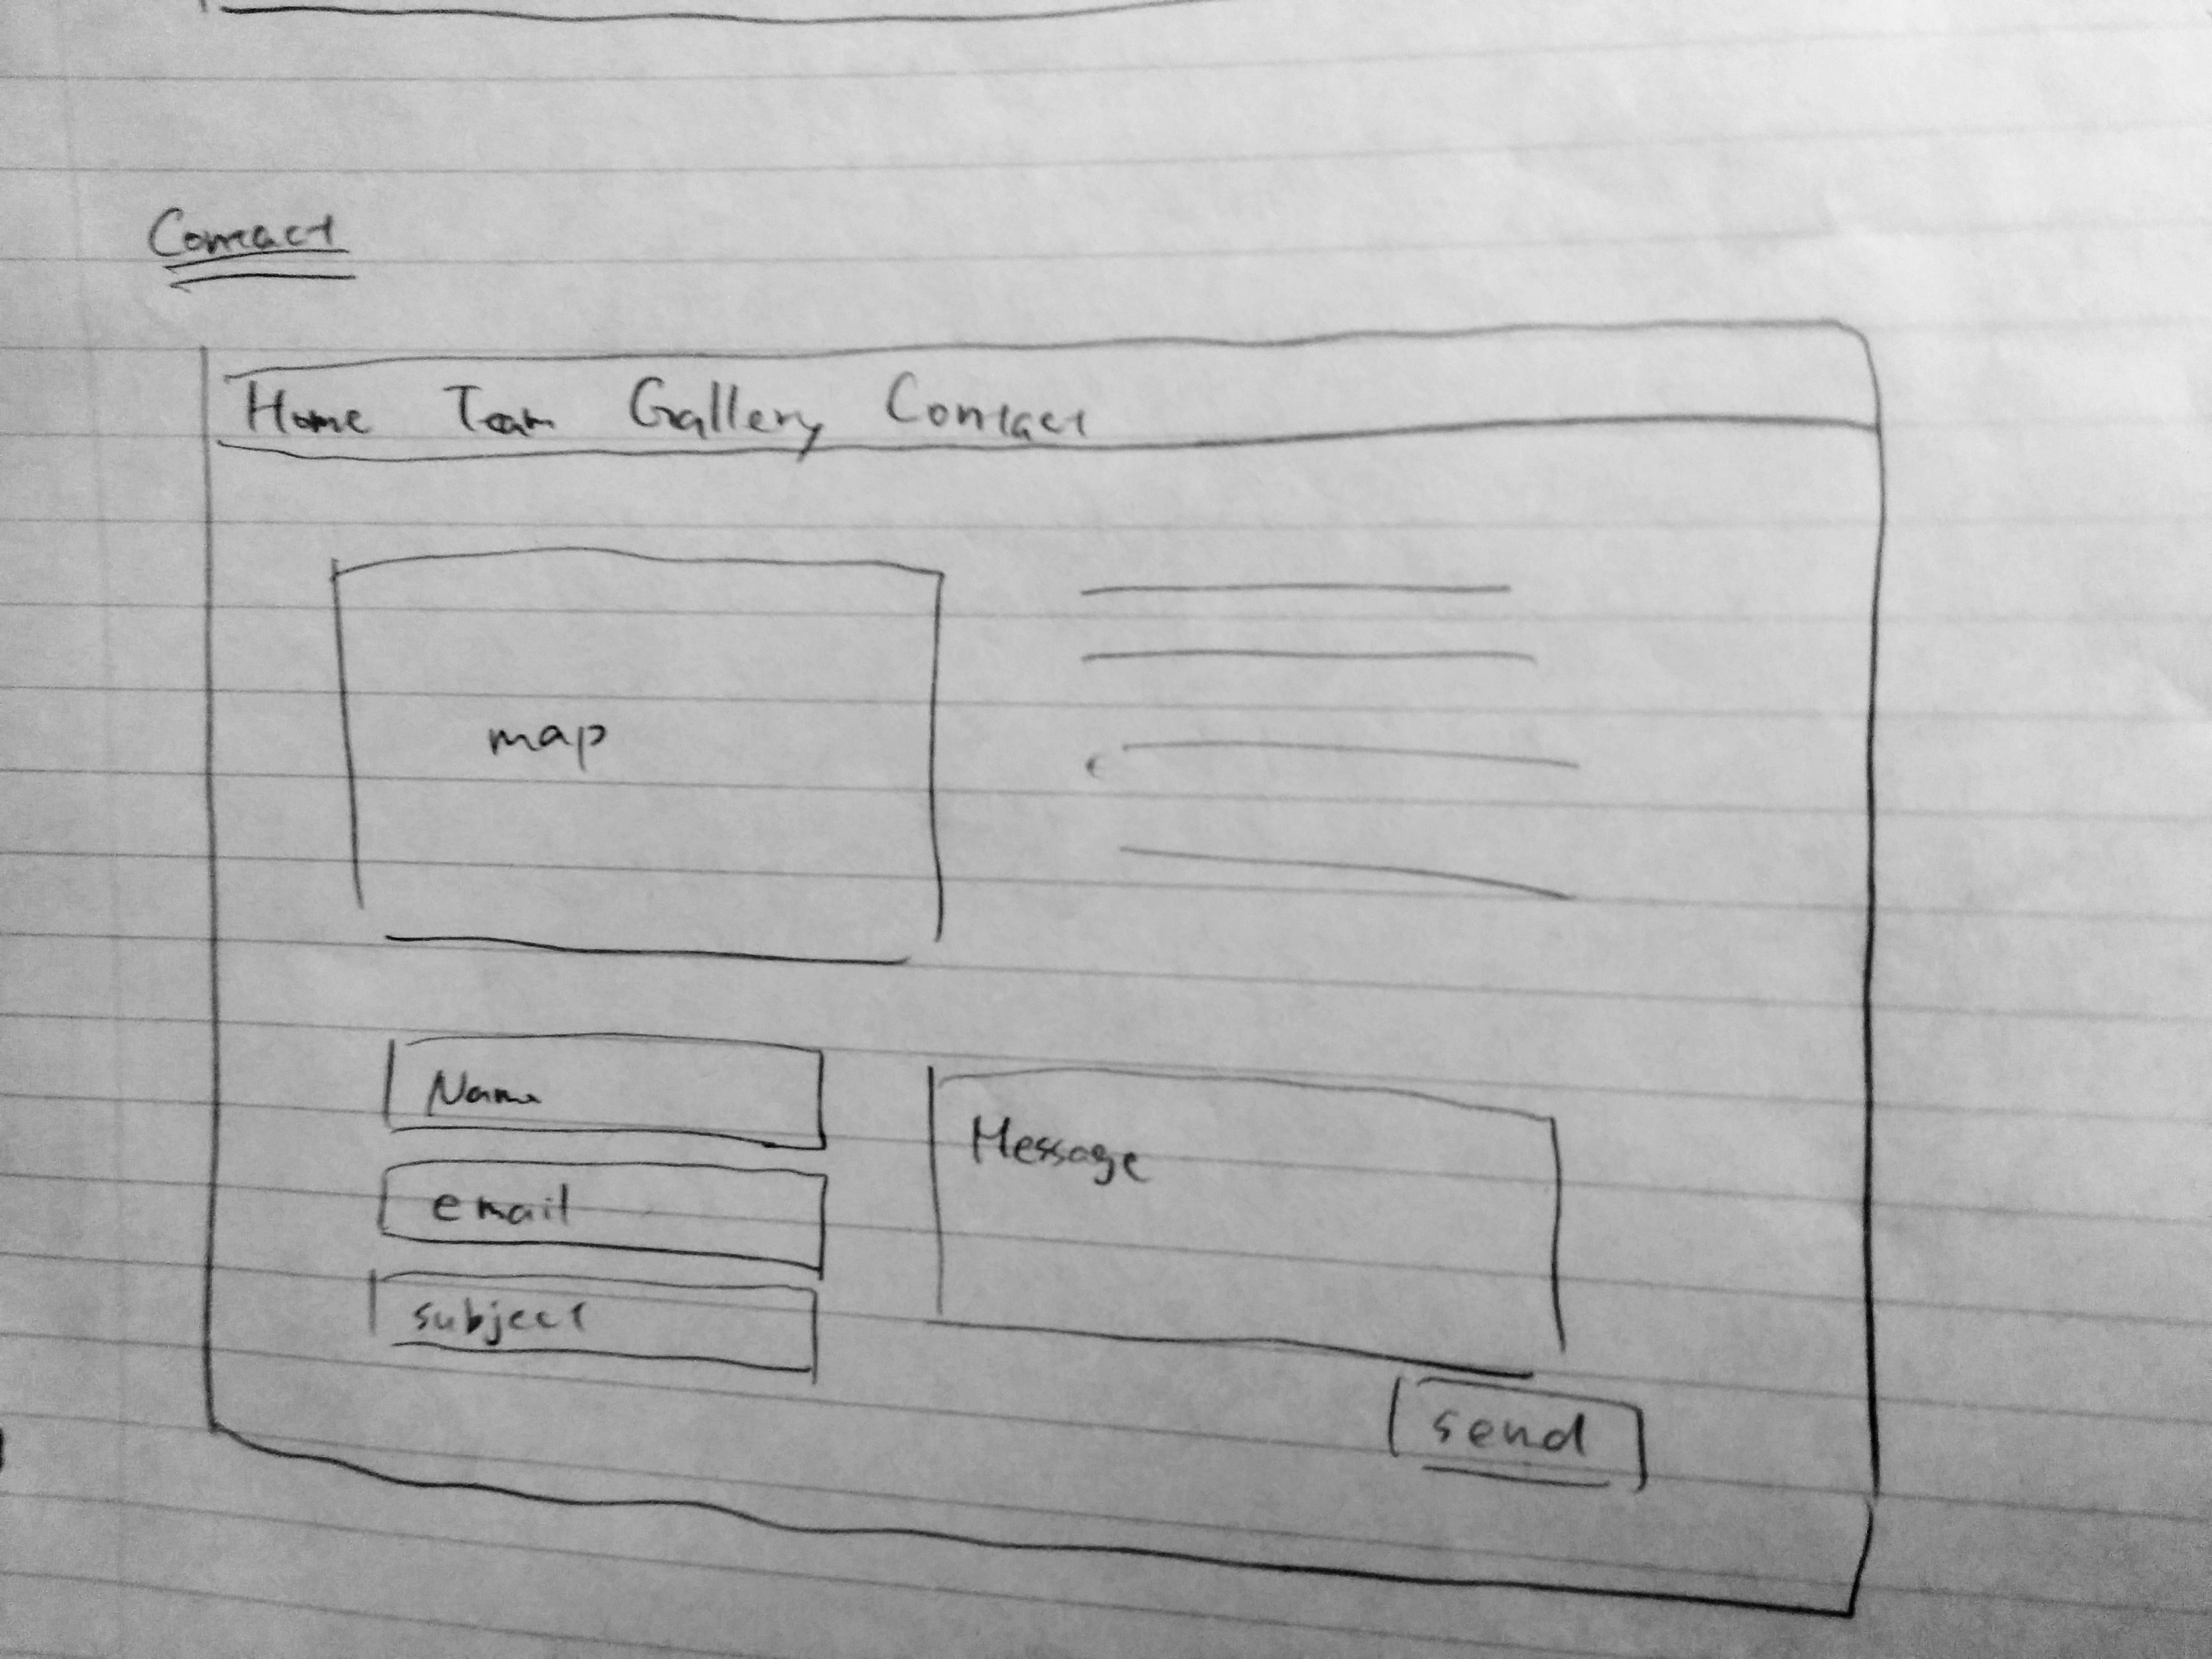 Contact
Home Team Gallery Contact
map
Name
email
subject
Message
send